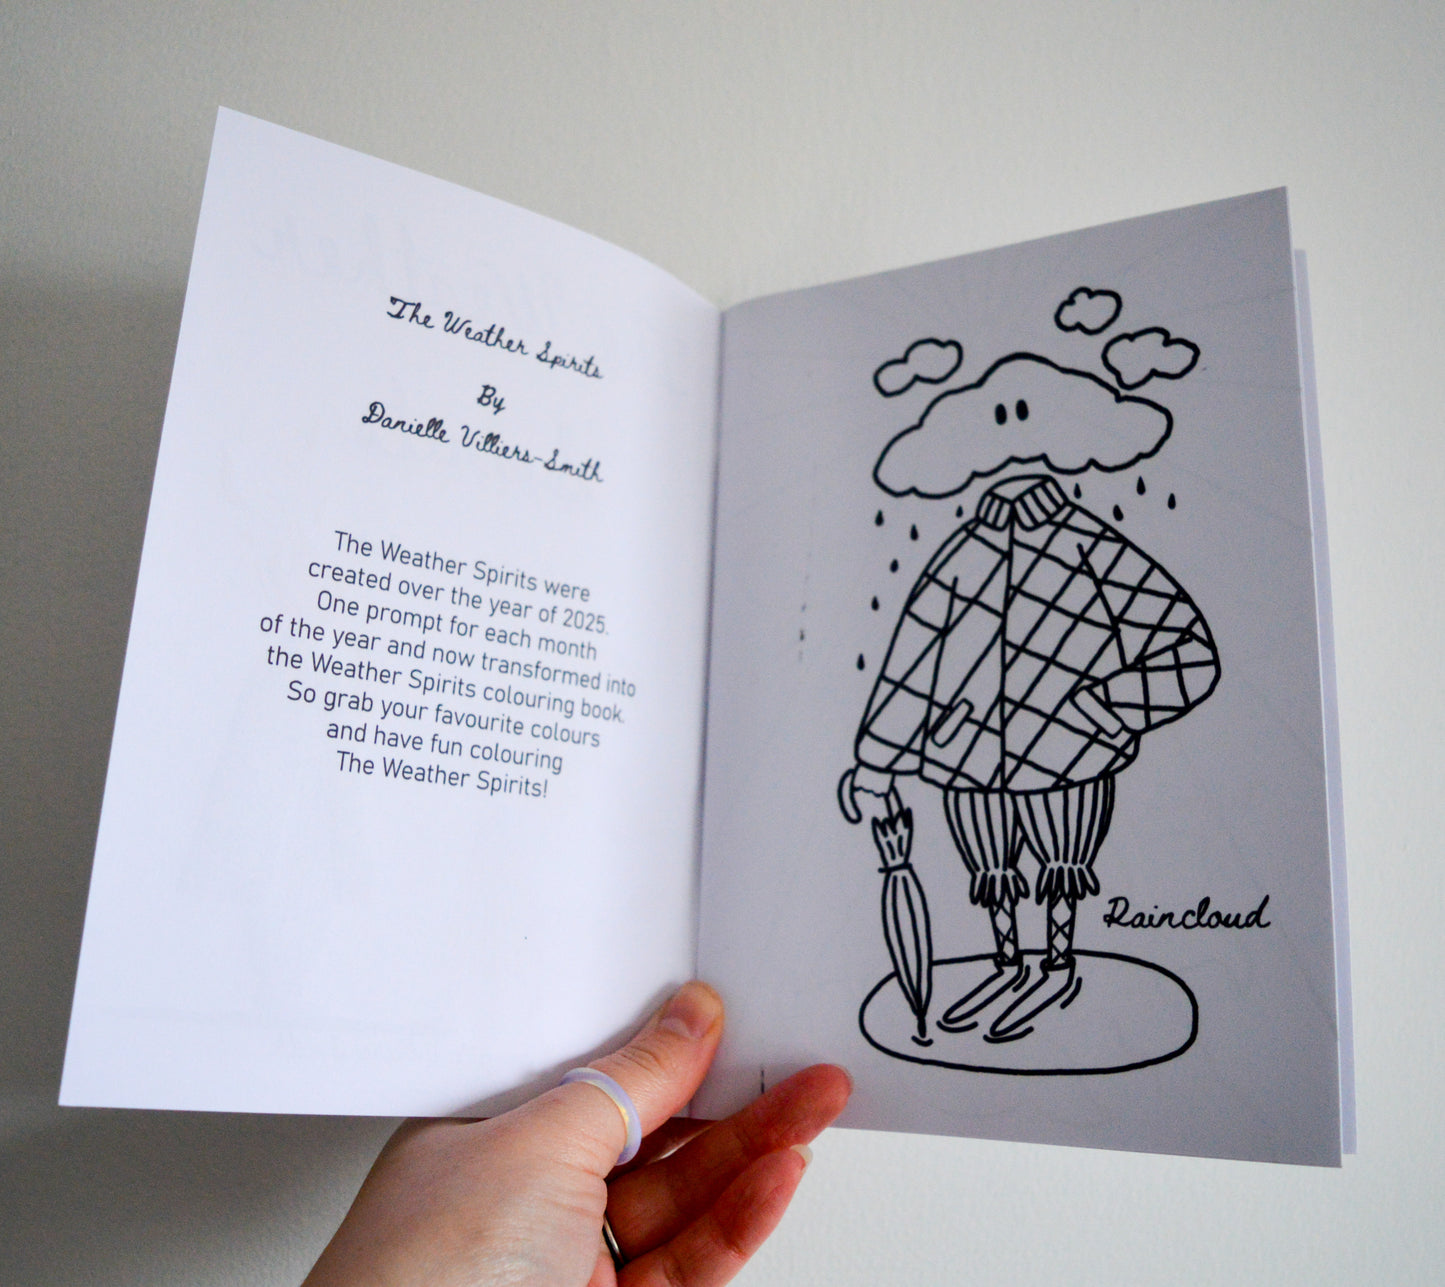 The Weather Spirits
By
Danielle Villiers-Smith
The Weather Spirits were
created over the year of 2025.
One prompt for each month
of the year and now transformed into
the Weather Spirits colouring book.
So grab your favourite colours
and have fun colouring
The Weather Spirits!
Raincloud